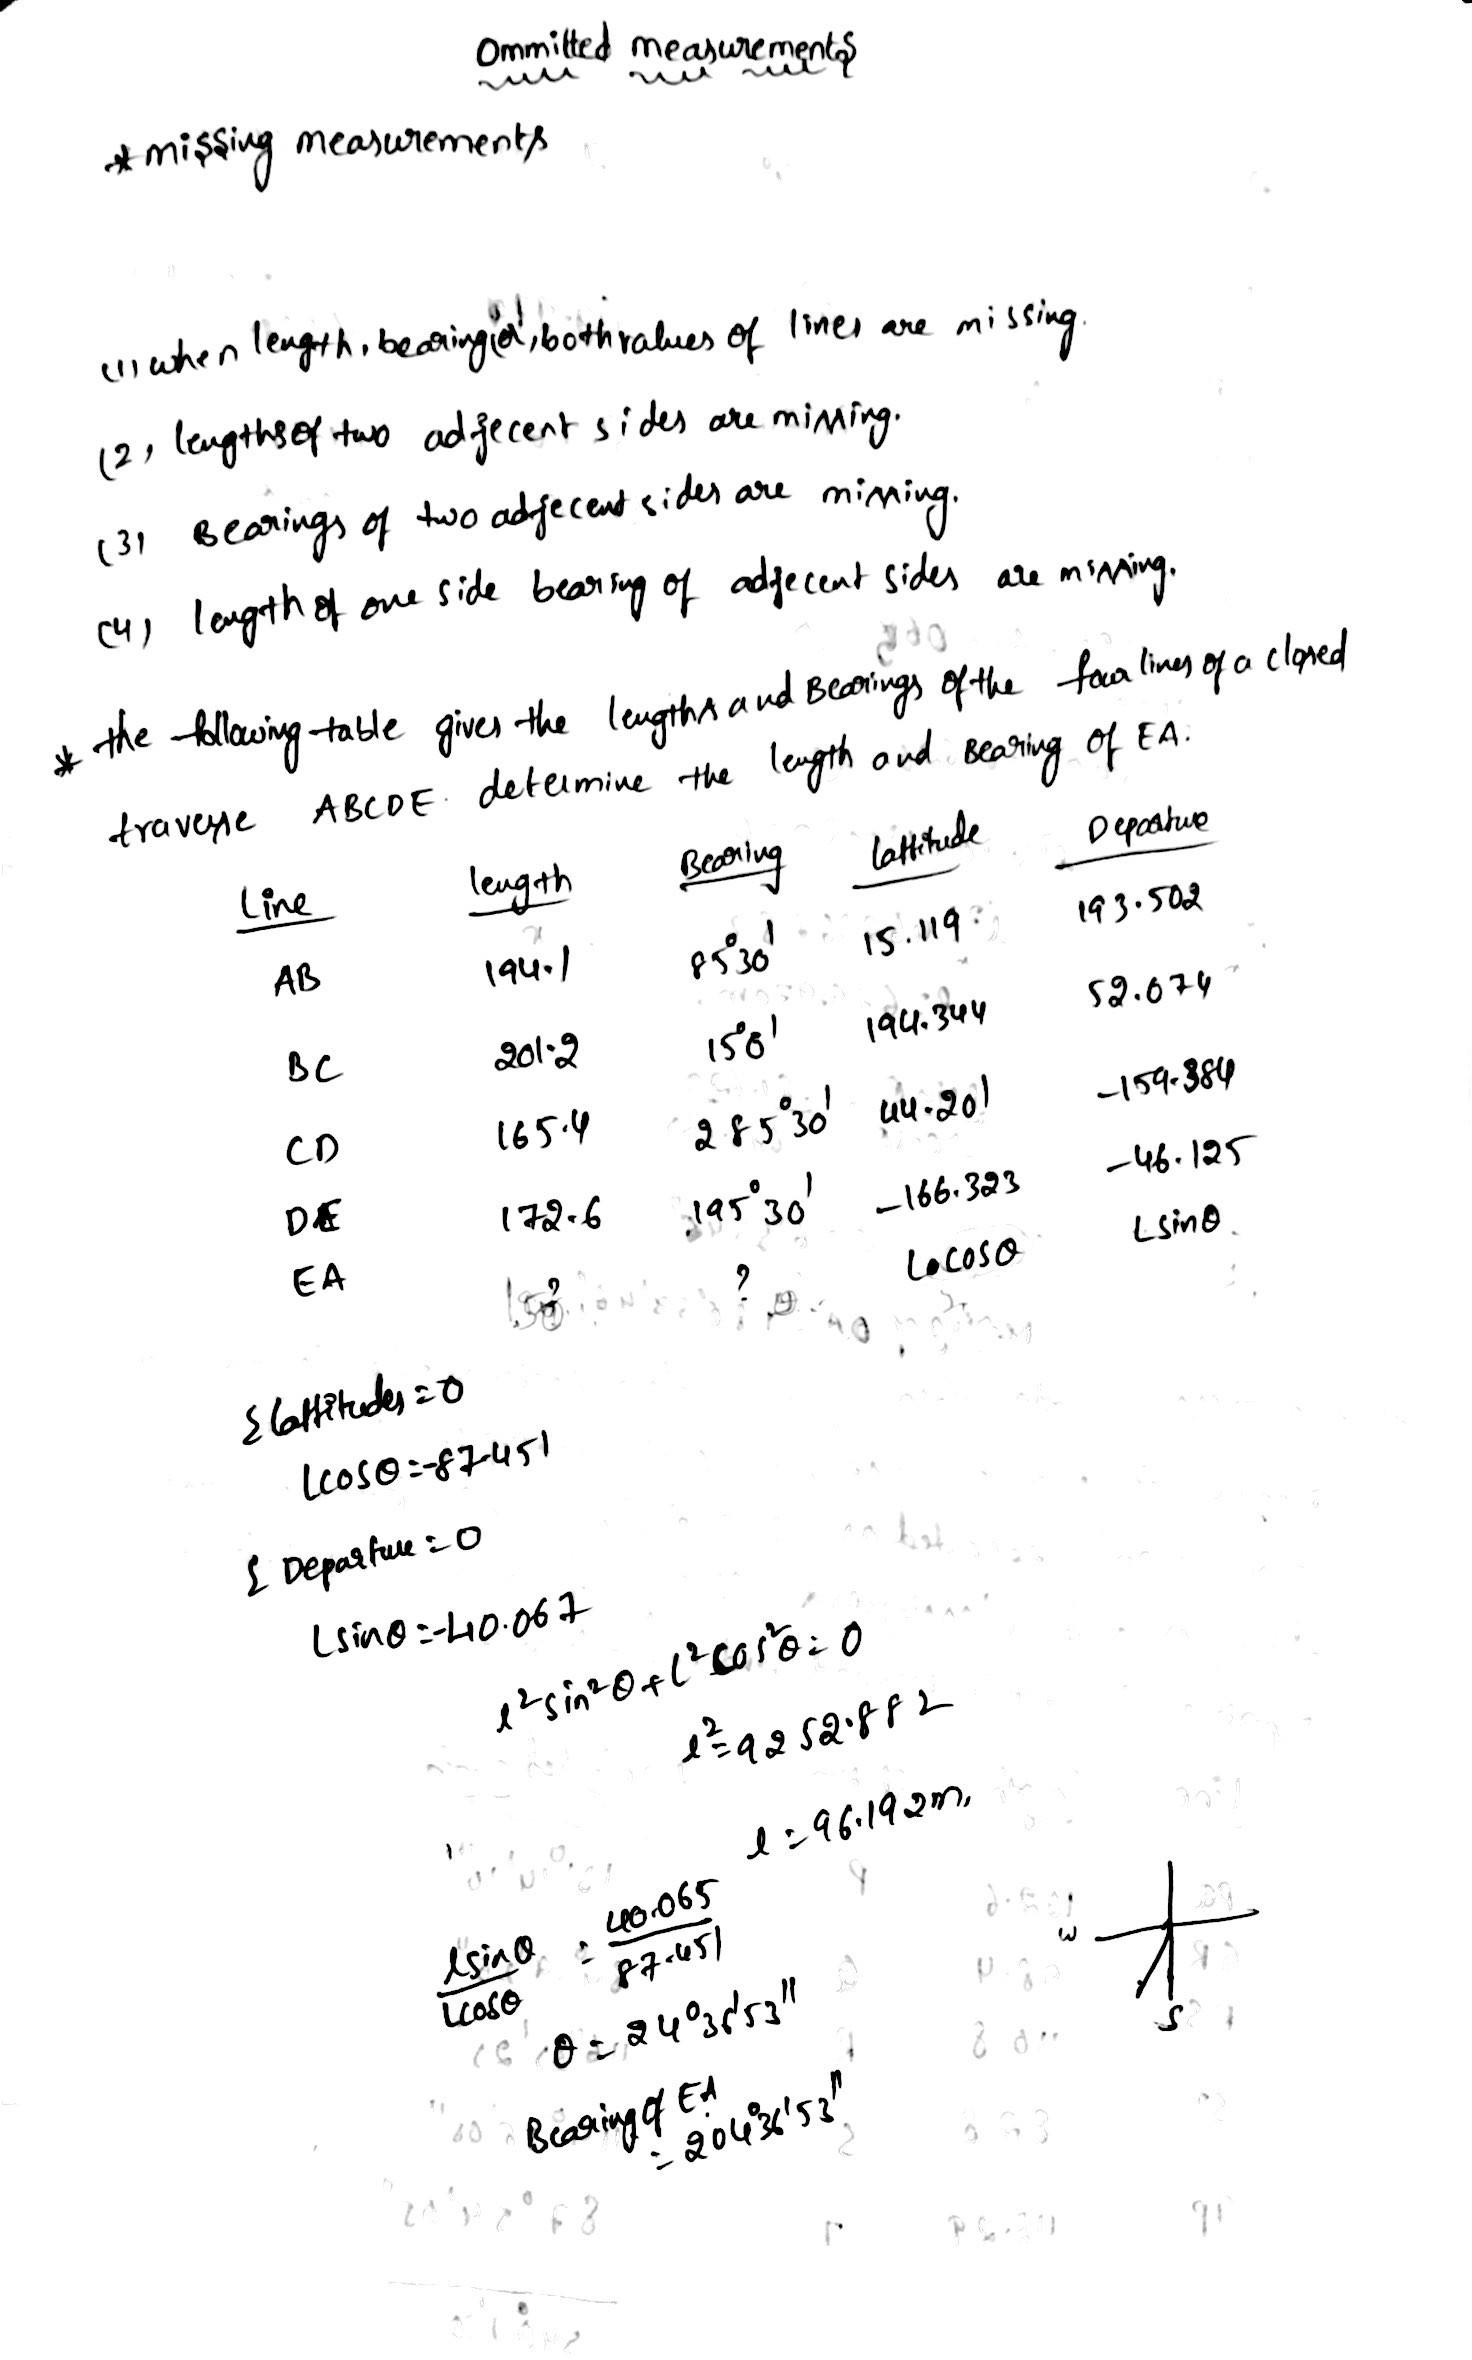 Ommitted measurements
* missing measurements
(1) when length, bearing (or) both values of lines are missing.
(2) lengths of two adjecent sides are missing.
(3) Bearings of two adjecent sides are missing.
(4) length of one side bearing of adjecent sides are missing.
* the following table gives the lengths and Bearings of the four lines of a closed
traverse ABCDE. determine the length and Bearing of EA.
Line length Bearing lattitude Departure
AB 194.1 85°30' 15.119 193.502
BC 201.2 15°0' 194.344 52.074
CD 165.4 285°30' 44.201 -159.384
DE 172.6 195°30' -166.323 -46.125
EA ? ? L cosθ Lsinθ
Σ lattitudes = 0
lcosθ = -87.451
Σ Departure = 0
Lsinθ = -40.067
l² sin²θ + l² cos²θ = 0
l² = 9252.882
l = 96.192m.
lsinθ/lcosθ = 40.065/87.451
W
S
θ = 24°36'53"
Bearing of EA
= 204°36'53"